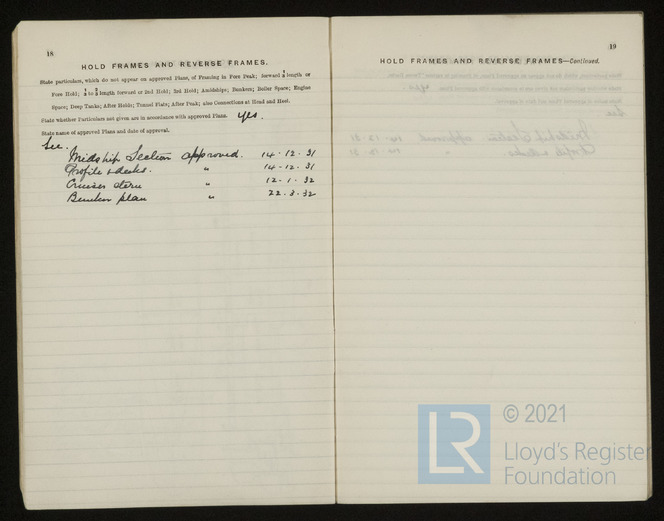 18
HOLD FRAMES AND REVERSE FRAMES.
State particulars, which do not appear on approved Plans, of Framing in Fore Peak; forward 1/5 length or
Fore Hold; 1/5 to 2/5 length forward or 2nd Hold; 3rd Hold; Amidships; Bunkers; Boiler Space; Engine
Space; Deep Tanks; After Holds; Tunnel Flats; After Peak; also Connections at Head and Heel.
State whether Particulars not given are in accordance with approved Plans. Yes.
State name of approved Plans and date of approval.
See.
Midship Section approved. 14.12.31
Profile & decks. " 14.12.31
Cruiser stern " 12.1.32
Bunker plan " 22.3.32
19
HOLD FRAMES AND REVERSE FRAMES—Continued.
LR
© 2021
Lloyd's Register
Foundation